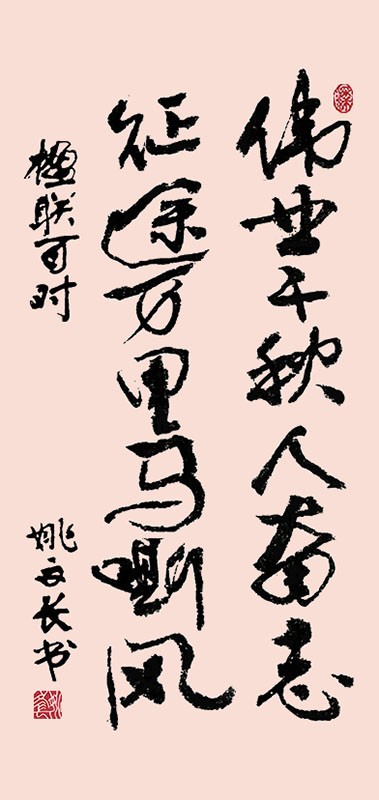 伟业千秋人奋志
征途万里马嘶风
楹联百对
姚文长书